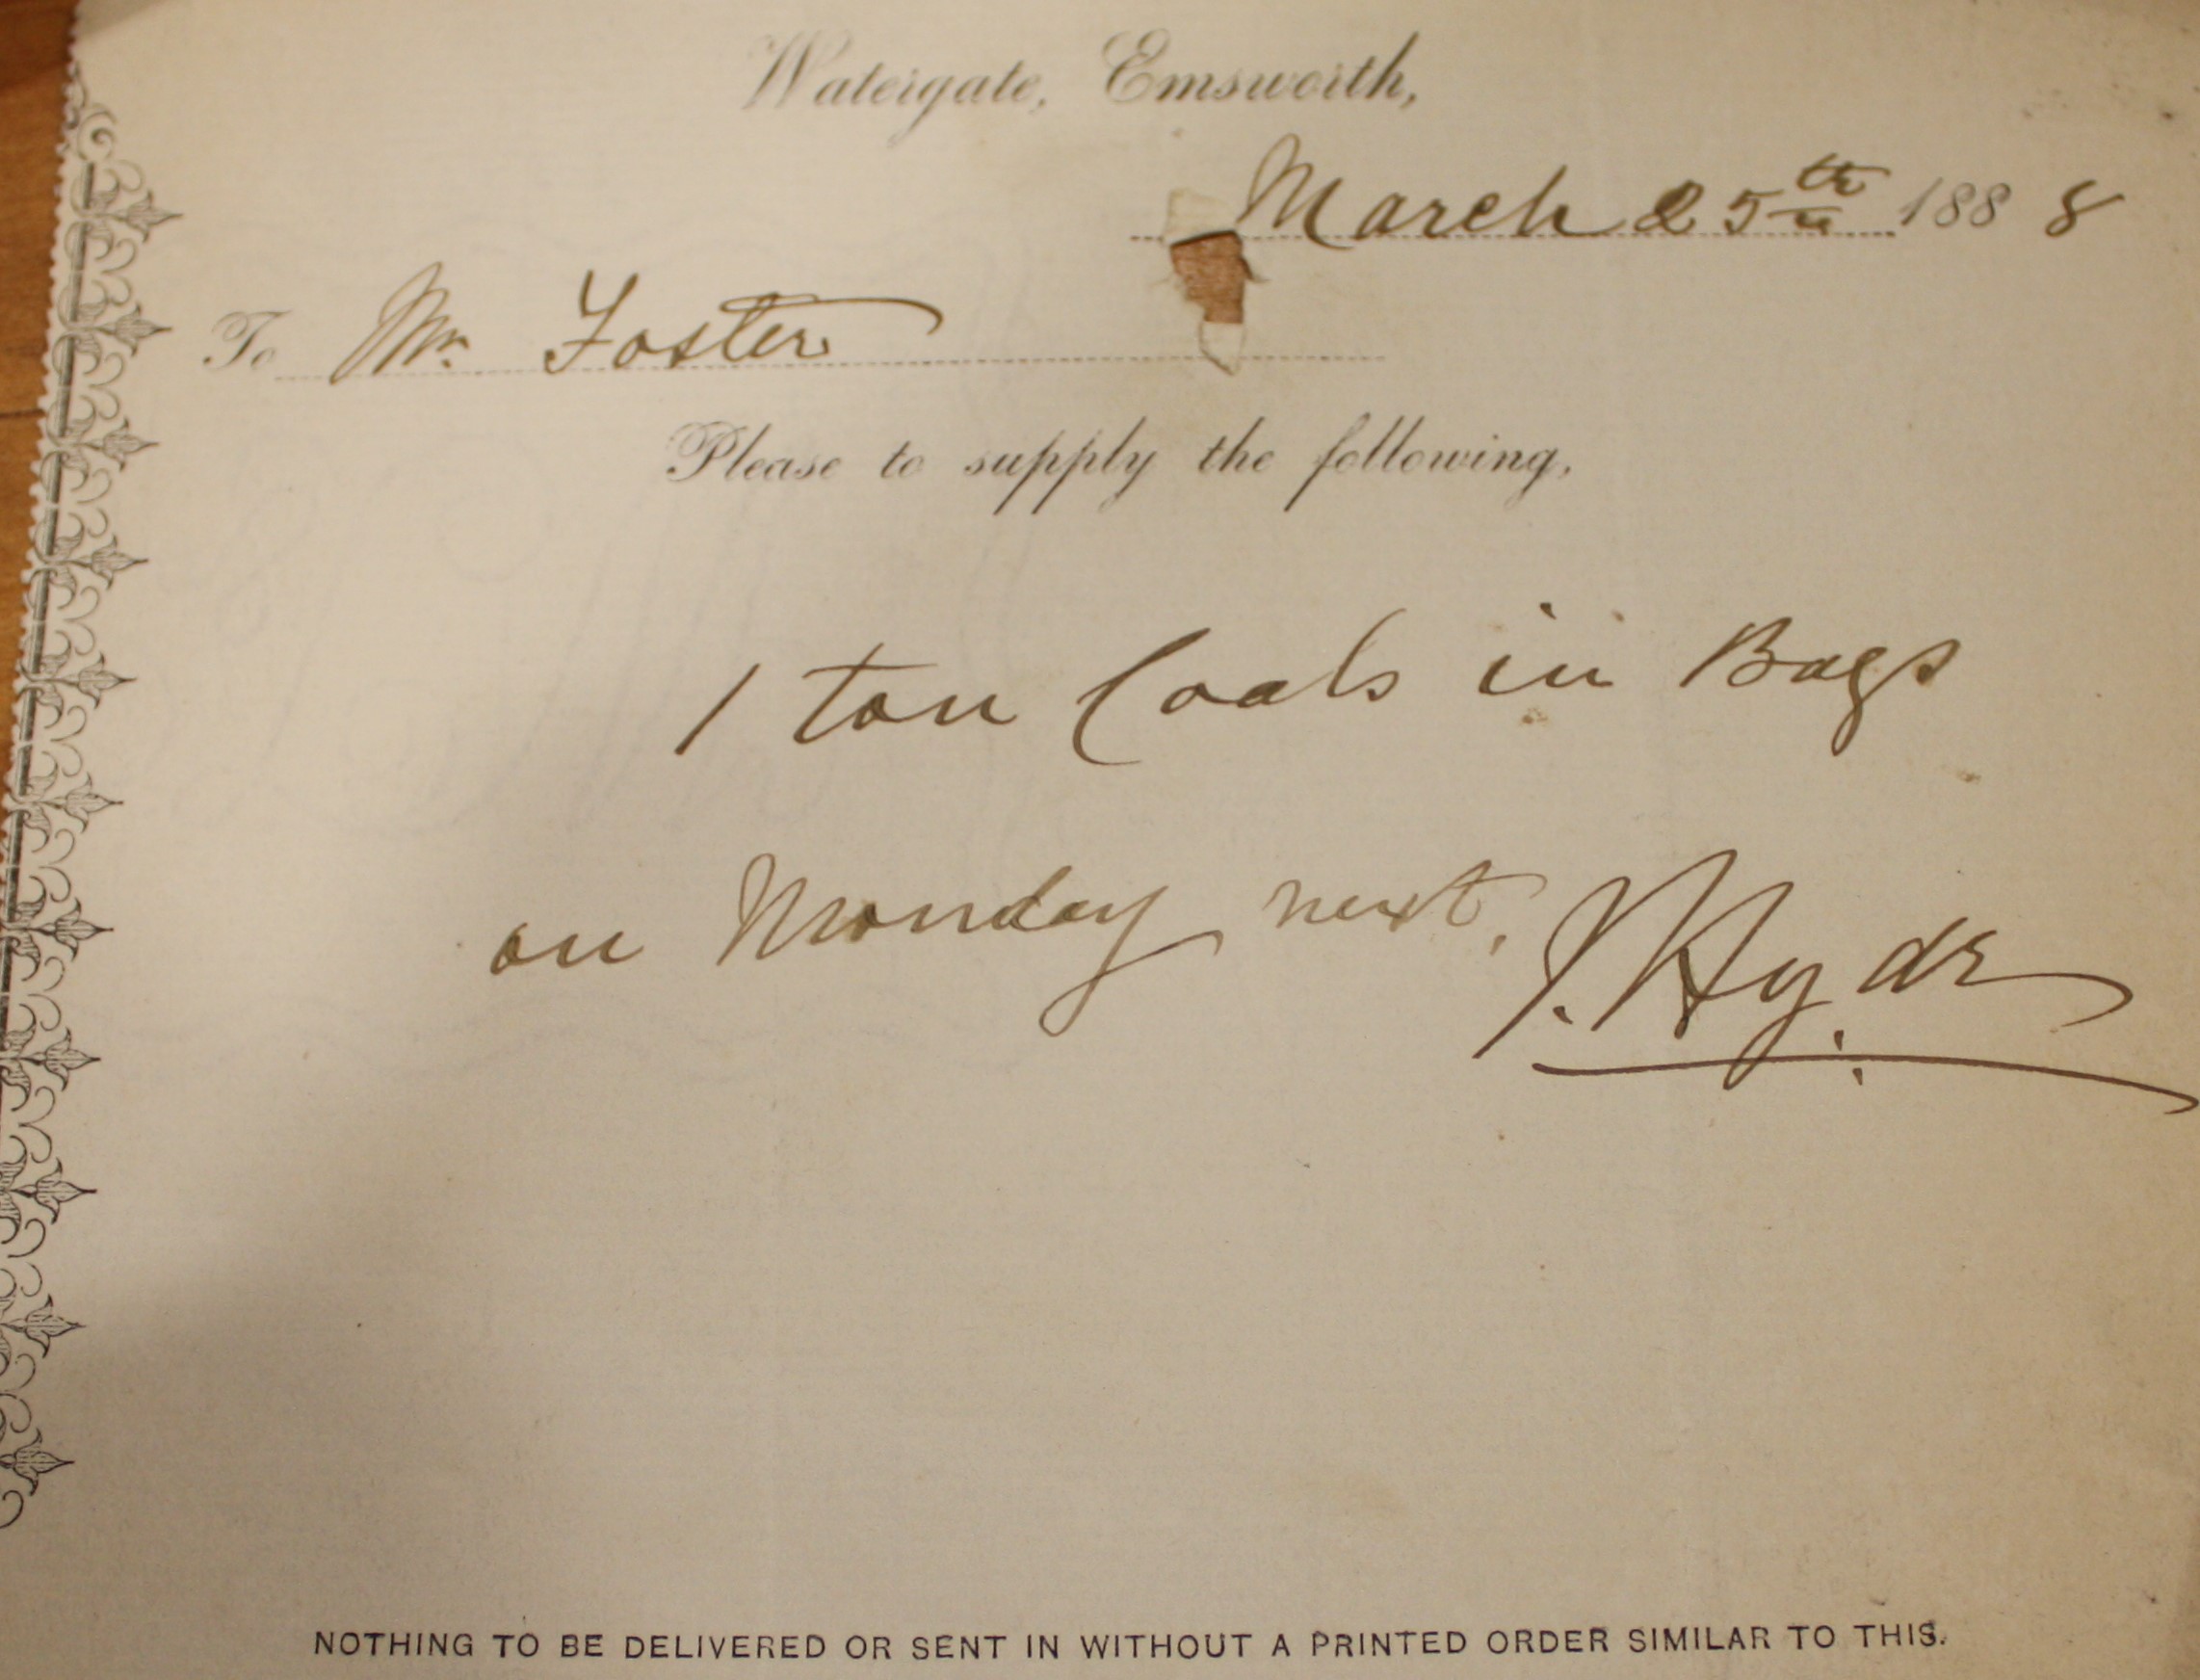 Watergate, Emsworth,
March 25th 1888
To Mr. Foster
Please to supply the following,
1 ton Coals in Bags
on Monday next,
J. Hyde
NOTHING TO BE DELIVERED OR SENT IN WITHOUT A PRINTED ORDER SIMILAR TO THIS.